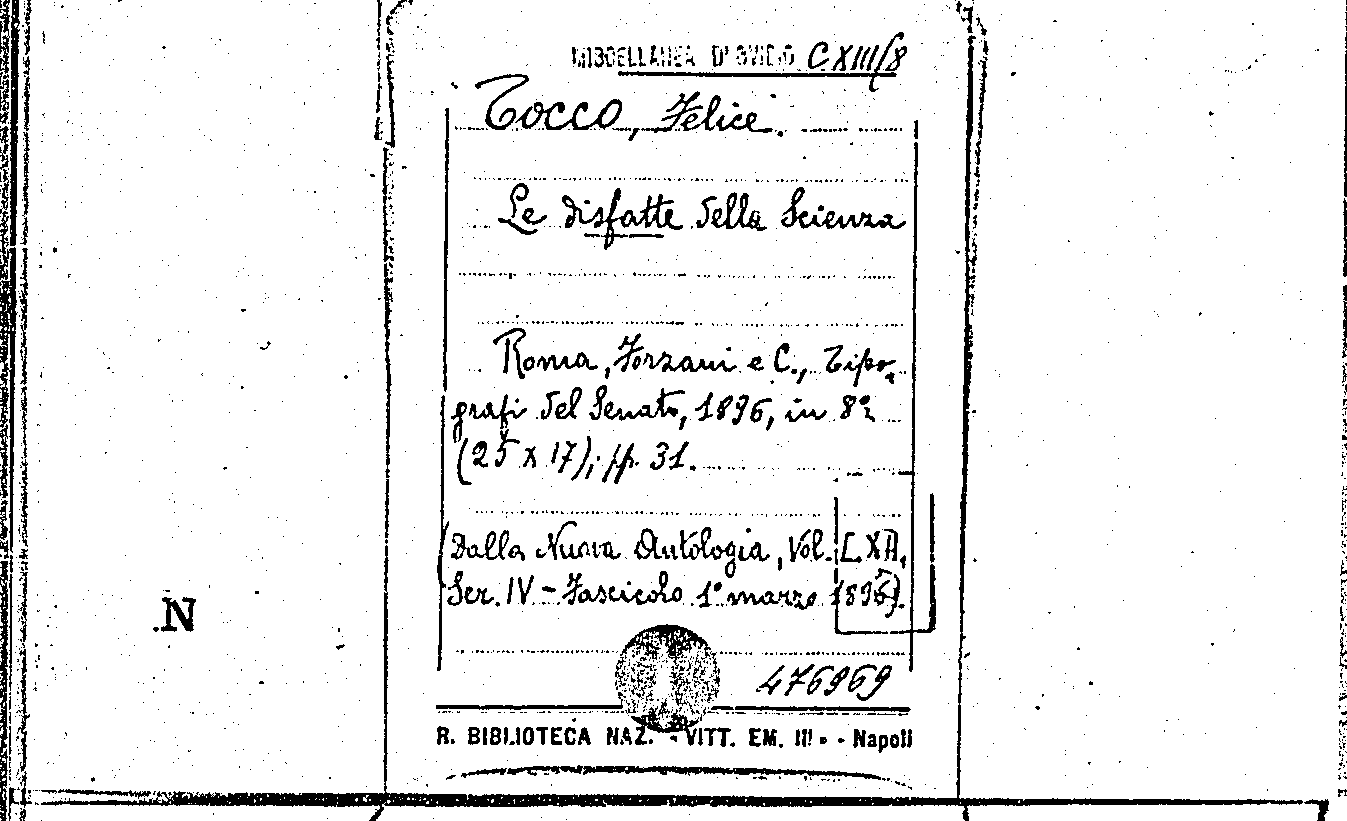 MISCELLANEA D'OVIDIO CXIII/8
Tocco, Felice.
Le disfatte della Scienza
Roma, Forzani e C., Tipo-
grafi del Senato, 1896, in 8º
(25 x 17); pp. 31.
(Dalla Nuova Antologia, Vol. LXII,
Ser. IV - Fascicolo 1º marzo 1896).
N
476969
R. BIBLIOTECA NAZ. - VITT. EM. III » - Napoli